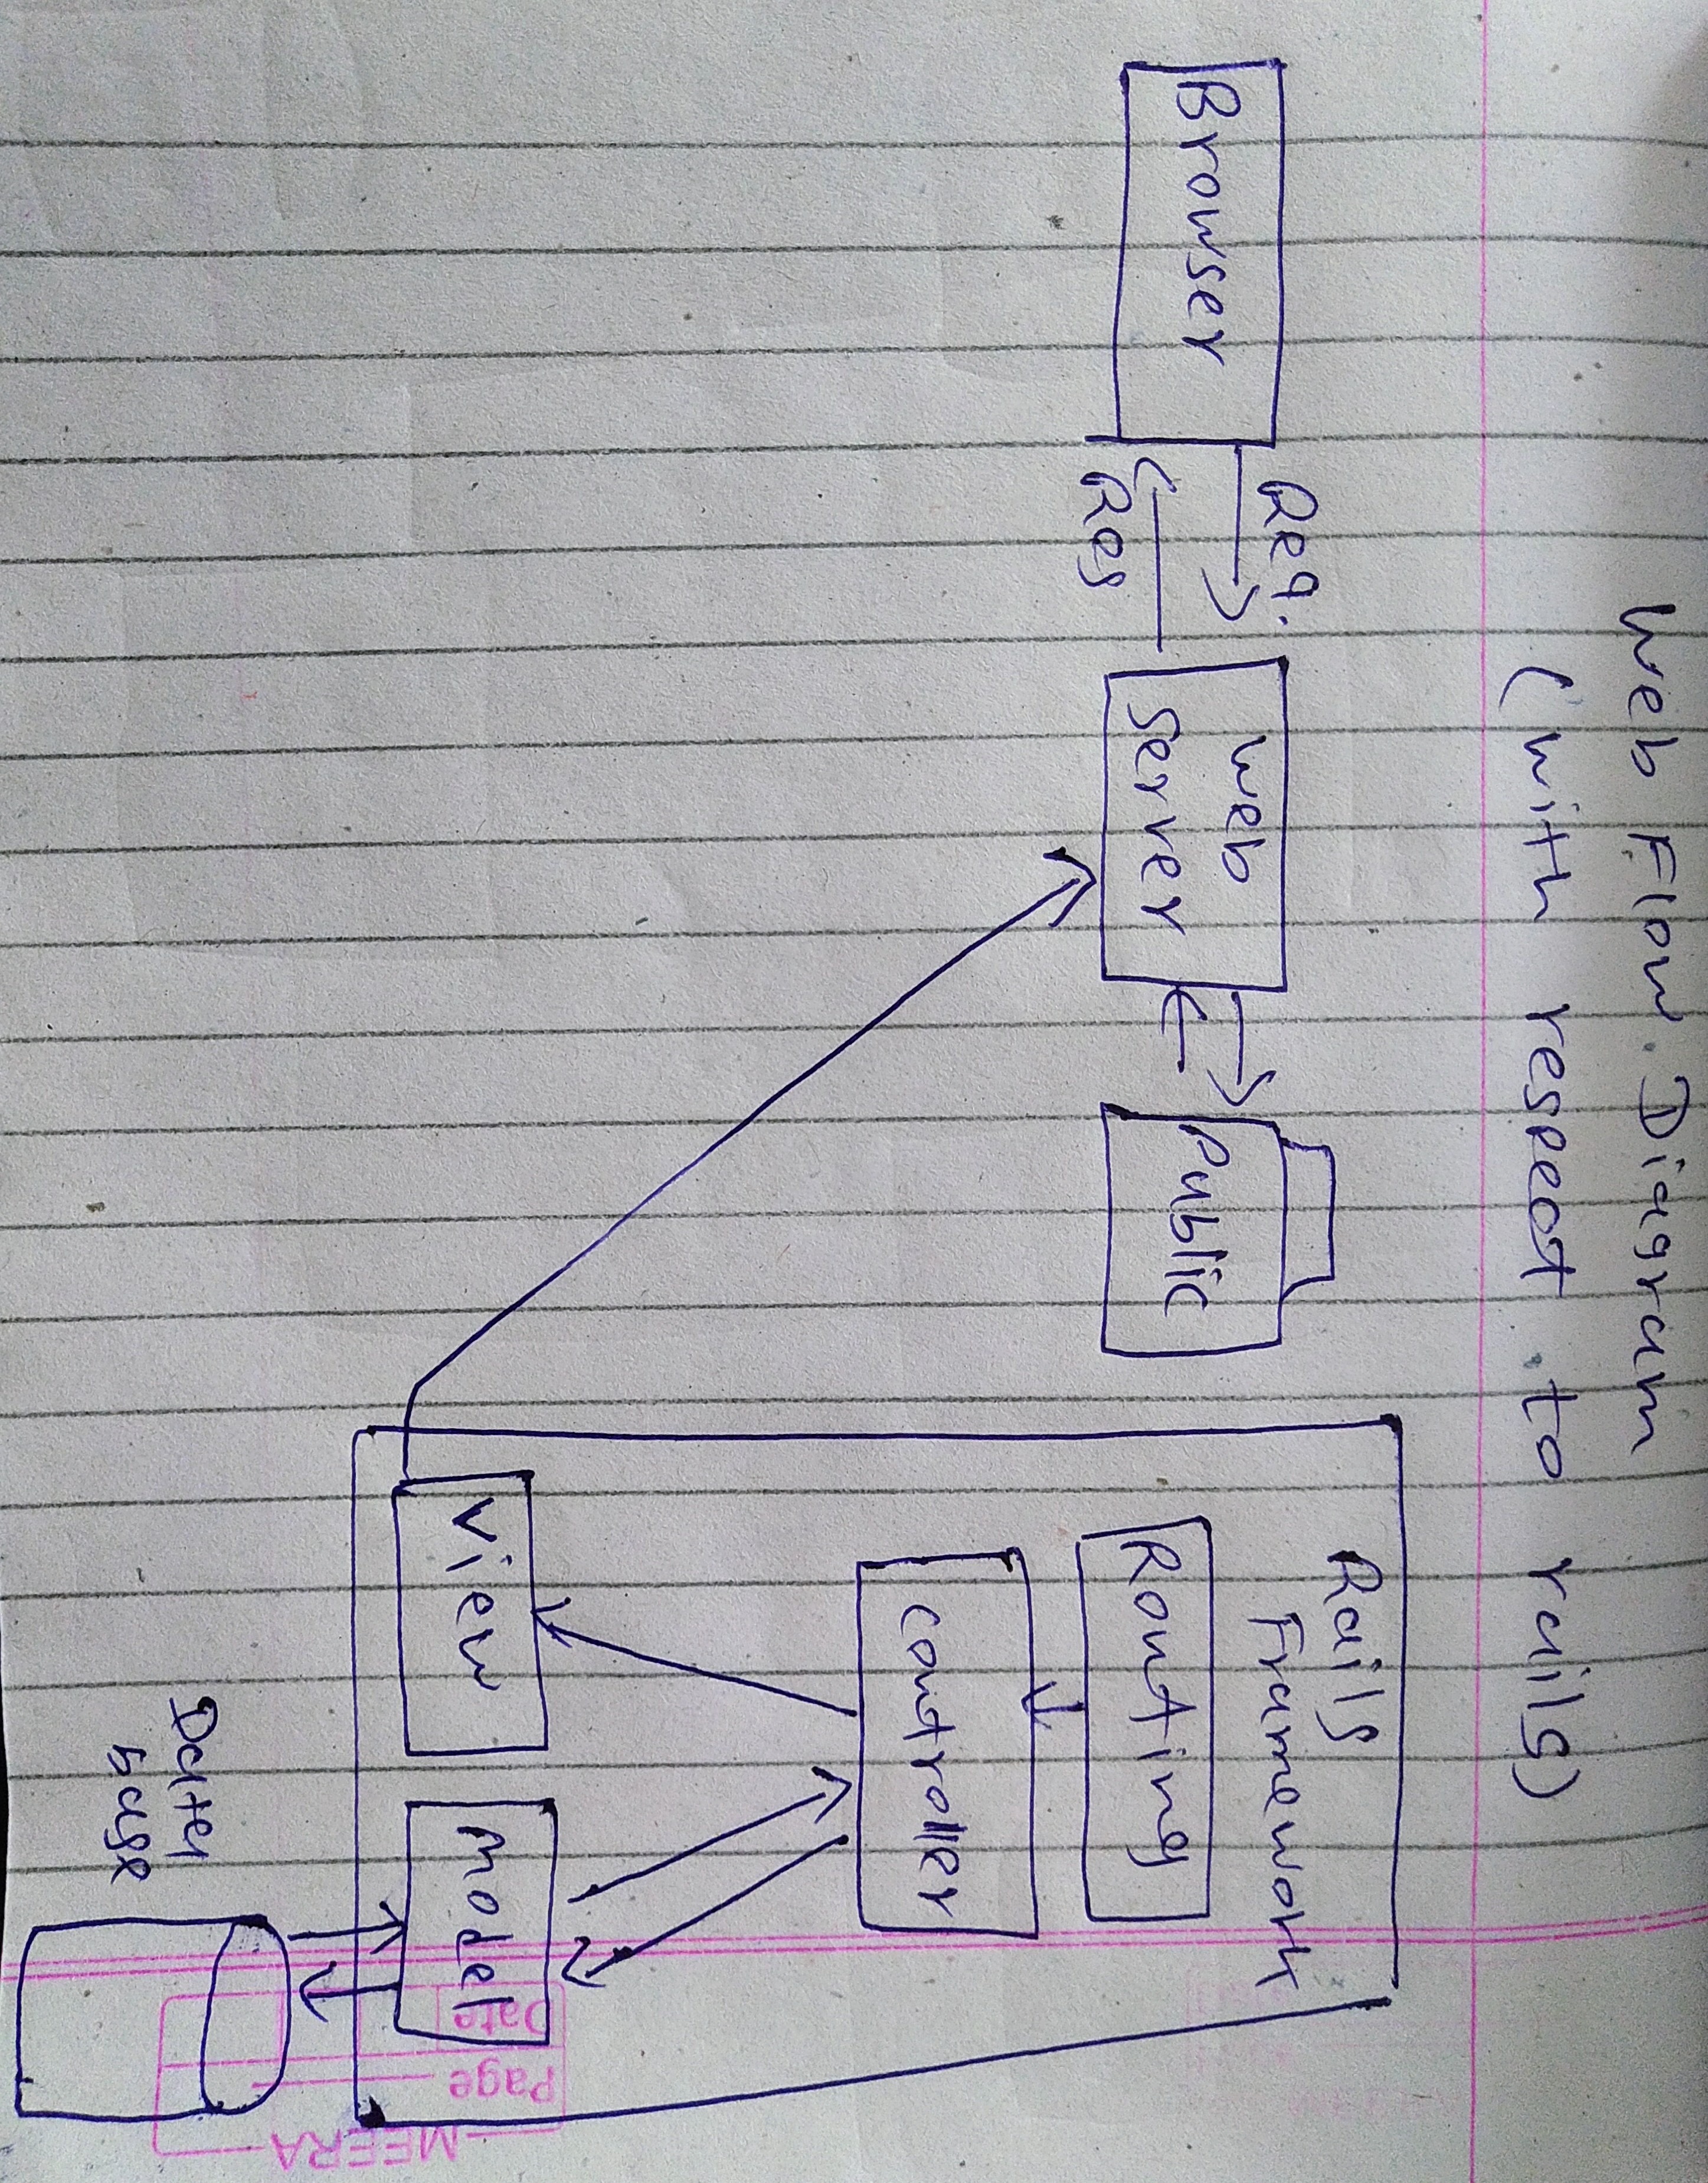 Web Flow Diagram
(with respect to rails)
Browser
Req.
Res
Web
Server
Public
Rails
Framework
Routing
Controller
View
Model
Data
base
Date
Page
MEERA